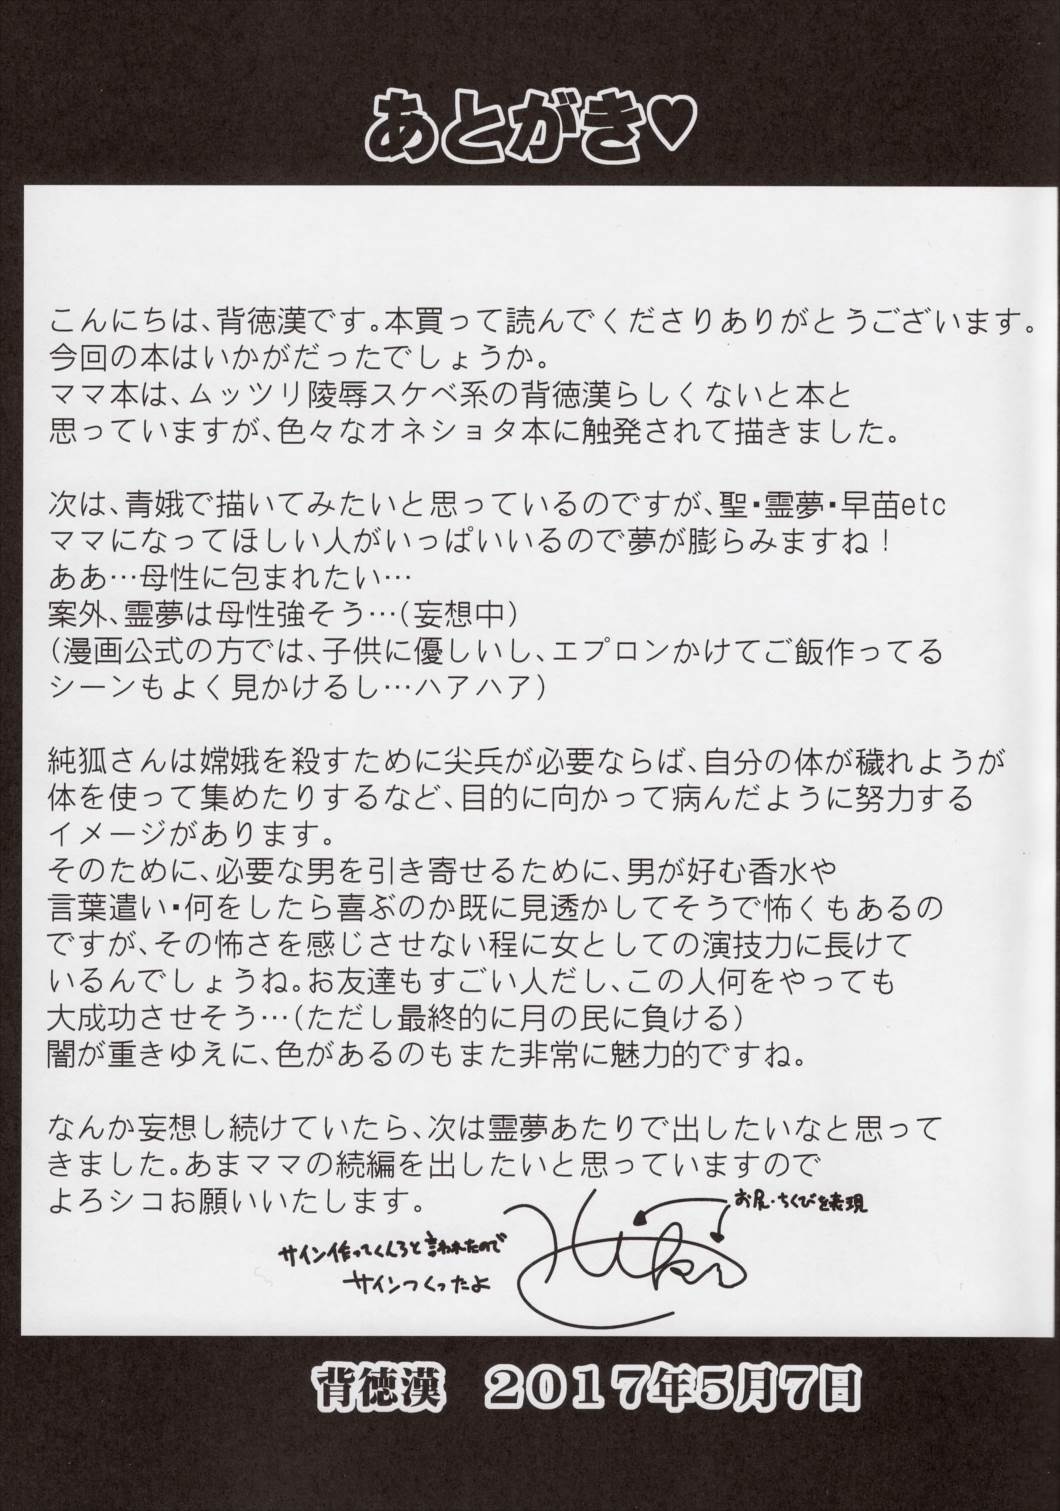 あとがき♡
こんにちは、背徳漢です。本買って読んでくださりありがとうございます。
今回の本はいかがだったでしょうか。
ママ本は、ムッツリ陵辱スケベ系の背徳漢らしくないと本と
思っていますが、色々なオネショタ本に触発されて描きました。
次は、青娥で描いてみたいと思っているのですが、聖・霊夢・早苗etc
ママになってほしい人がいっぱいいるので夢が膨らみますね！
ああ…母性に包まれたい…
案外、霊夢は母性強そう…(妄想中)
(漫画公式の方では、子供に優しいし、エプロンかけてご飯作ってる
シーンもよく見かけるし…ハアハア)
純狐さんは嫦娥を殺すために尖兵が必要ならば、自分の体が穢れようが
体を使って集めたりするなど、目的に向かって病んだように努力する
イメージがあります。
そのために、必要な男を引き寄せるために、男が好む香水や
言葉遣い・何をしたら喜ぶのか既に見透かしてそうで怖くもあるの
ですが、その怖さを感じさせない程に女としての演技力に長けて
いるんでしょうね。お友達もすごい人だし、この人何をやっても
大成功させそう…(ただし最終的に月の民に負ける)
闇が重きゆえに、色があるのもまた非常に魅力的ですね。
なんか妄想し続けていたら、次は霊夢あたりで出したいなと思って
きました。あまママの続編を出したいと思っていますので
よろシコお願いいたします。
お尻・ちくびを表現
サイン作ってくんろと言われたので
サインつくったよ
背徳漢 2017年5月7日